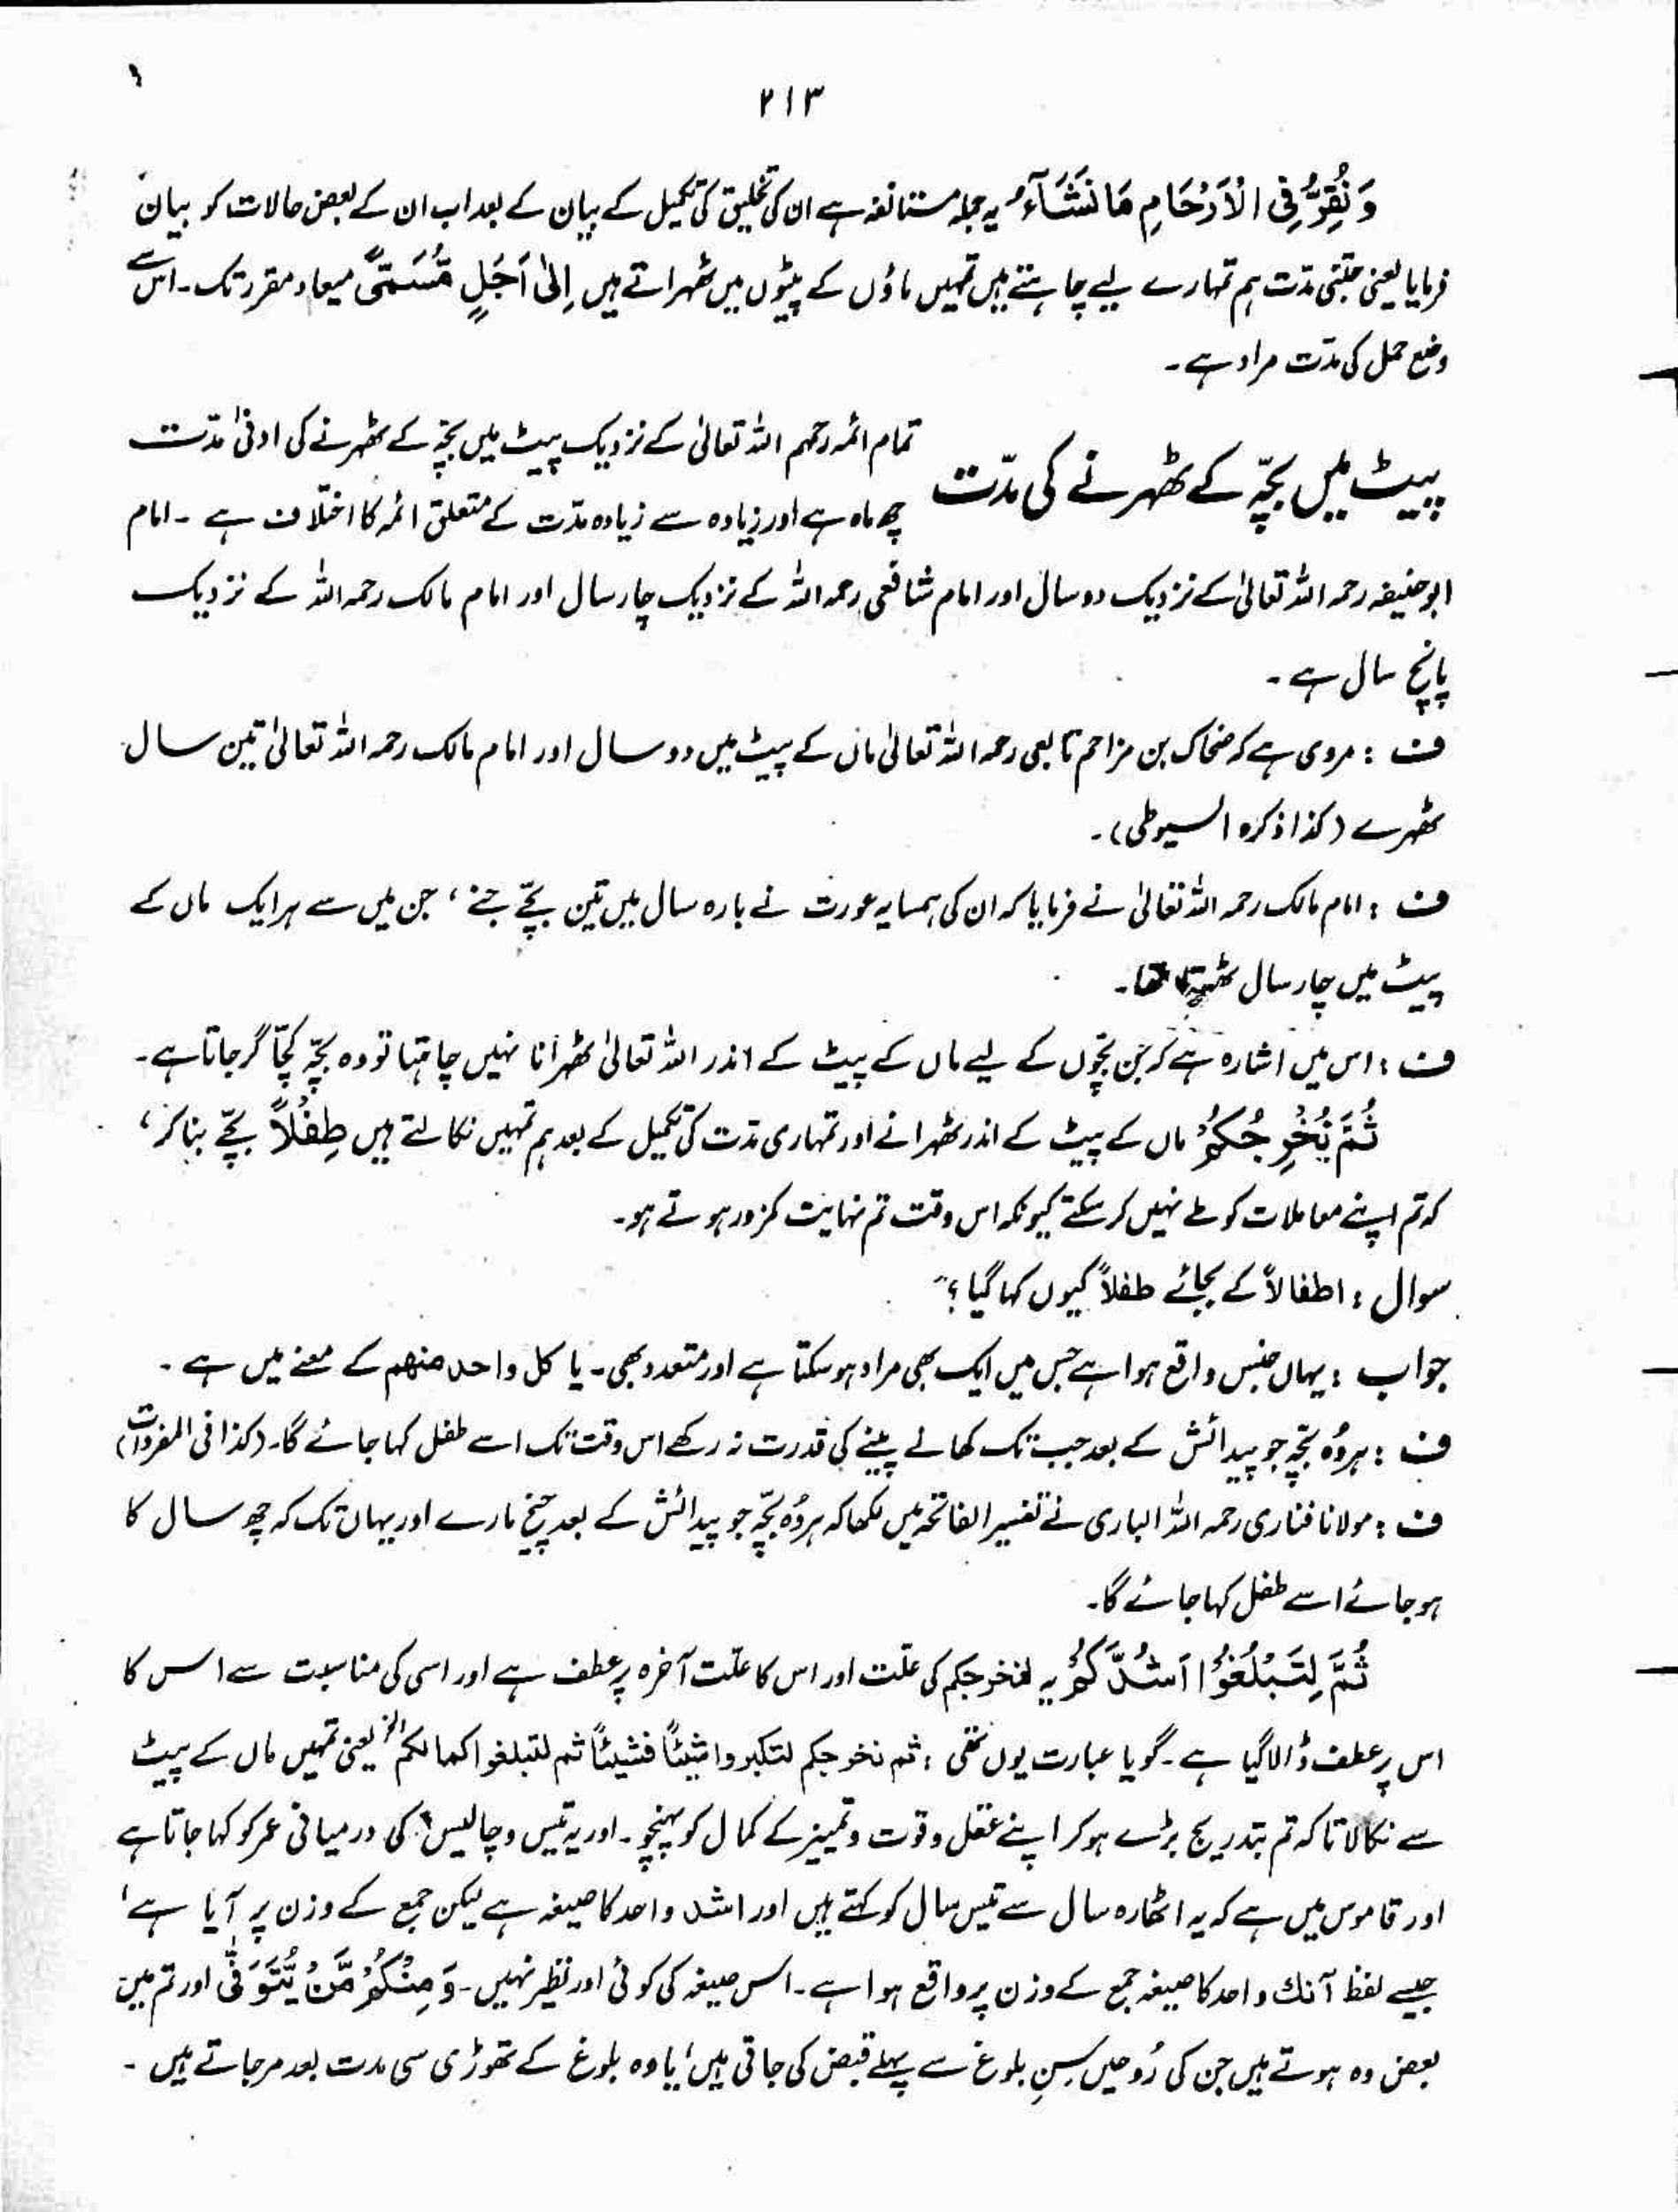 ۲۱۳
وَ نُقِرُّ فِی الْاَرْحَامِ مَا نَشَآءُ یہ جملہ مستانفہ ہے ان کی تخلیق کی تکمیل کے بیان کے بعد اب ان کے بعض حالات کو بیان
فرمایا یعنی جتنی مدّت ہم تمہارے لیے چاہتے ہیں تمہیں ماؤں کے پیٹوں میں ٹھہراتے ہیں اِلیٰٓ اَجَلٍ مُّسَمًّی میعاد مقرر تک۔ اس سے
وضع حمل کی مدّت مراد ہے۔
پیٹ میں بچّہ کے ٹھہرنے کی مدّت
تمام ائمہ رحمہم اللہ تعالیٰ کے نزدیک پیٹ میں بچّہ کے ٹھہرنے کی ادنیٰ مدّت
چھ ماہ ہے اور زیادہ سے زیادہ مدّت کے متعلق ائمہ کا اختلاف ہے ۔ امام
ابوحنیفہ رحمہ اللہ تعالیٰ کے نزدیک دو سال اور امام شافعی رحمہ اللہ کے نزدیک چار سال اور امام مالک رحمہ اللہ کے نزدیک
پانچ سال ہے ۔
ف : مروی ہے کہ ضحاک بن مزاحم تابعی رحمہ اللہ تعالیٰ ماں کے پیٹ میں دو سال اور امام مالک رحمہ اللہ تعالیٰ تین سال
ٹھہرے (کذا ذکرہ السیوطی)۔
ف : امام مالک رحمہ اللہ تعالیٰ نے فرمایا کہ ان کی ہمسایہ عورت نے بارہ سال میں تین بچّے جنے ، جن میں سے ہر ایک ماں کے
پیٹ میں چار سال ٹھہرتا تھا۔
ف : اس میں اشارہ ہے کہ جن بچّوں کے لیے ماں کے پیٹ کے اندر اللہ تعالیٰ ٹھہرانا نہیں چاہتا تو وہ بچّہ کچّا گر جاتا ہے۔
ثُمَّ نُخْرِجُکُمْ ماں کے پیٹ کے اندر ٹھہرانے اور تمہاری مدّت کی تکمیل کے بعد ہم تمہیں نکالتے ہیں طِفْلاً بچّے بنا کر ،
کہ تم اپنے معاملات کو طے نہیں کر سکتے کیونکہ اس وقت تم نہایت کمزور ہوتے ہو۔
سوال : اطفالاً کے بجائے طفلاً کیوں کہا گیا ؟
جواب : یہاں جنس واقع ہوا ہے جس میں ایک بھی مراد ہو سکتا ہے اور متعدد بھی۔ یا کل واحد منھم کے معنے میں ہے ۔
ف : ہر وُہ بچّہ جو پیدائش کے بعد جب تک کھانے پینے کی قدرت نہ رکھے اس وقت تک اسے طفل کہا جائے گا۔ (کذا فی المفردات)
ف : مولانا فناری رحمہ اللہ الباری نے تفسیر الفاتحہ میں لکھا کہ ہر وُہ بچّہ جو پیدائش کے بعد چیخ مارے اور یہاں تک کہ چھ سال کا
ہو جائے اسے طفل کہا جائے گا۔
ثُمَّ لِتَبْلُغُوْٓا اَشُدَّکُمْ یہ لنخرجکم کی علّت اور اس کا علّت آخرہ پر عطف ہے اور اسی کی مناسبت سے اس کا
اس پر عطف ڈالا گیا ہے ۔ گویا عبارت یوں تھی : ثم نخرجکم لتکبروا شیئاً فشیئاً ثم لتبلغوا کمالکم الخ یعنی تمہیں ماں کے پیٹ
سے نکالا تاکہ تم بتدریج بڑے ہو کر اپنے عقل و قوت و تمییز کے کمال کو پہنچو ۔ اور یہ تیس و چالیس کی درمیانی عمر کو کہا جاتا ہے
اور قاموس میں ہے کہ یہ اٹھارہ سال سے تیس سال کو کہتے ہیں اور اشد واحد کا صیغہ ہے لیکن جمع کے وزن پر آیا ہے ،
جیسے لفظ آنك واحد کا صیغہ جمع کے وزن پر واقع ہوا ہے ۔ اس صیغہ کی کوئی اور نظیر نہیں ۔ وَ مِنْکُمْ مَّنْ یُّتَوَفّٰی اور تم میں
بعض وہ ہوتے ہیں جن کی رُوحیں سِنِ بلوغ سے پہلے قبض کی جاتی ہیں ، یا وہ بلوغ کے تھوڑی سی مدت بعد مر جاتے ہیں ۔